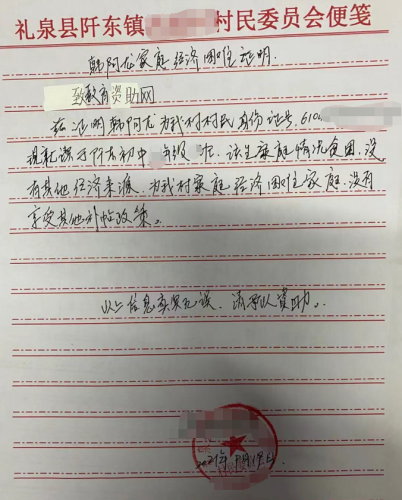 礼泉县阡东镇 村民委员会便笺
韩阿龙家庭经济困难证明
致教育资助网
兹证明韩阿龙为我村村民身份证号:610
现就读于阡东初中 年级 班。该生家庭情况贫困,没
有其他经济来源,为我村家庭经济困难家庭,没有
享受其他补贴政策。
以上信息真实无误,请予以资助。